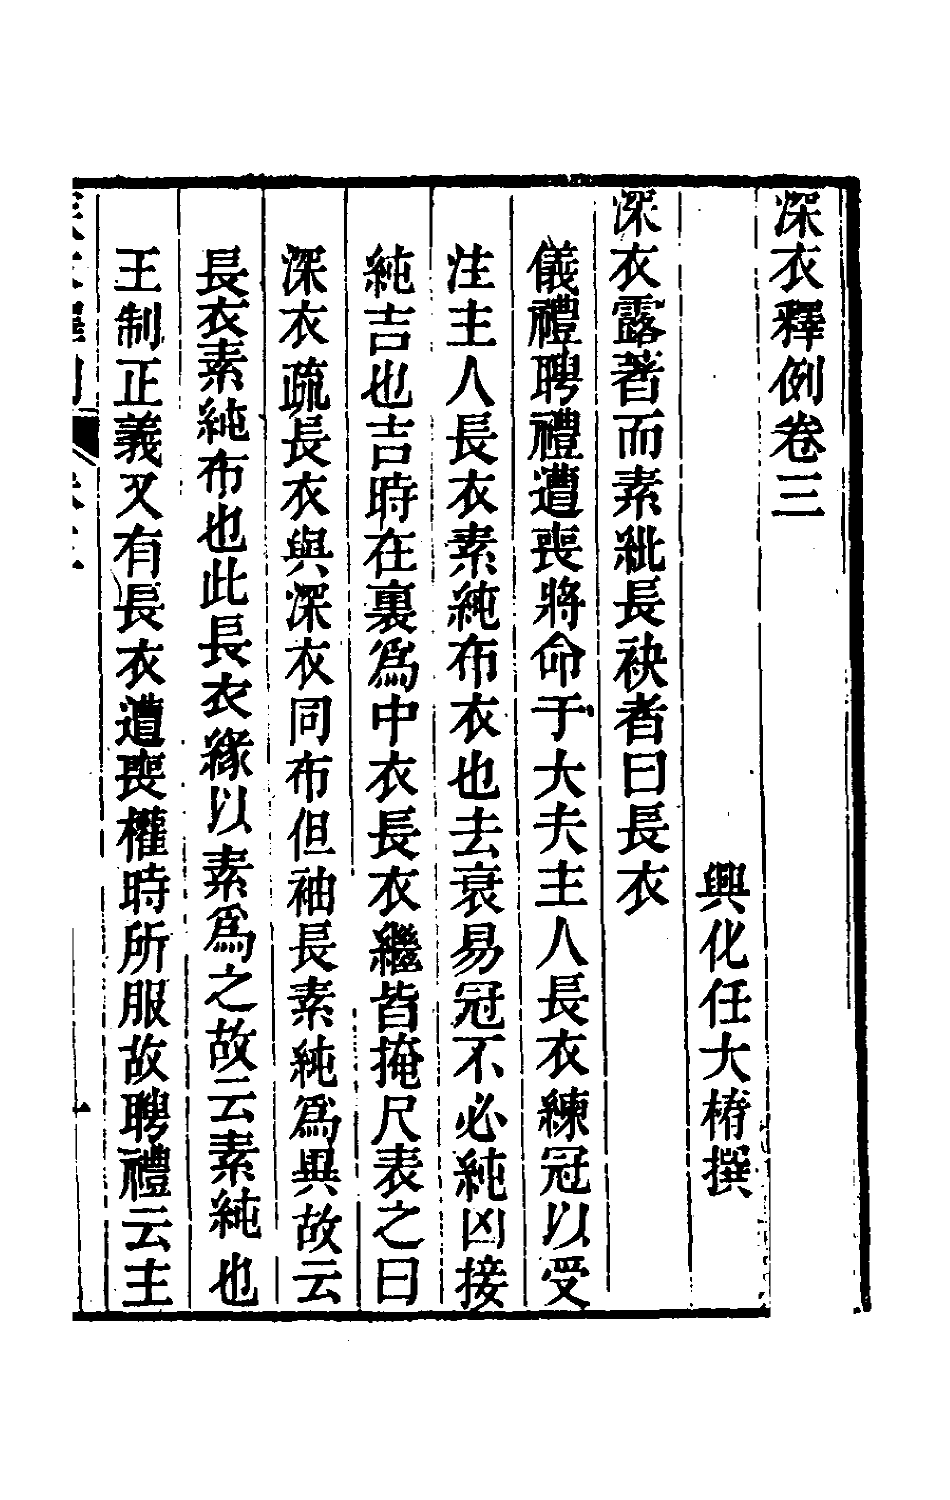 深衣釋例卷三
興化任大椿撰
深衣露著而素紕長袂者曰長衣
儀禮聘禮遭喪將命于大夫主人長衣練冠以受
注主人長衣素純布衣也去衰易冠不必純凶接
純吉也吉時在裏爲中衣長衣繼皆掩尺表之曰
深衣疏長衣與深衣同布但袖長素純爲異故云
長衣素純布也此長衣緣以素爲之故云素純也
王制正義又有長衣遭喪權時所服故聘禮云主